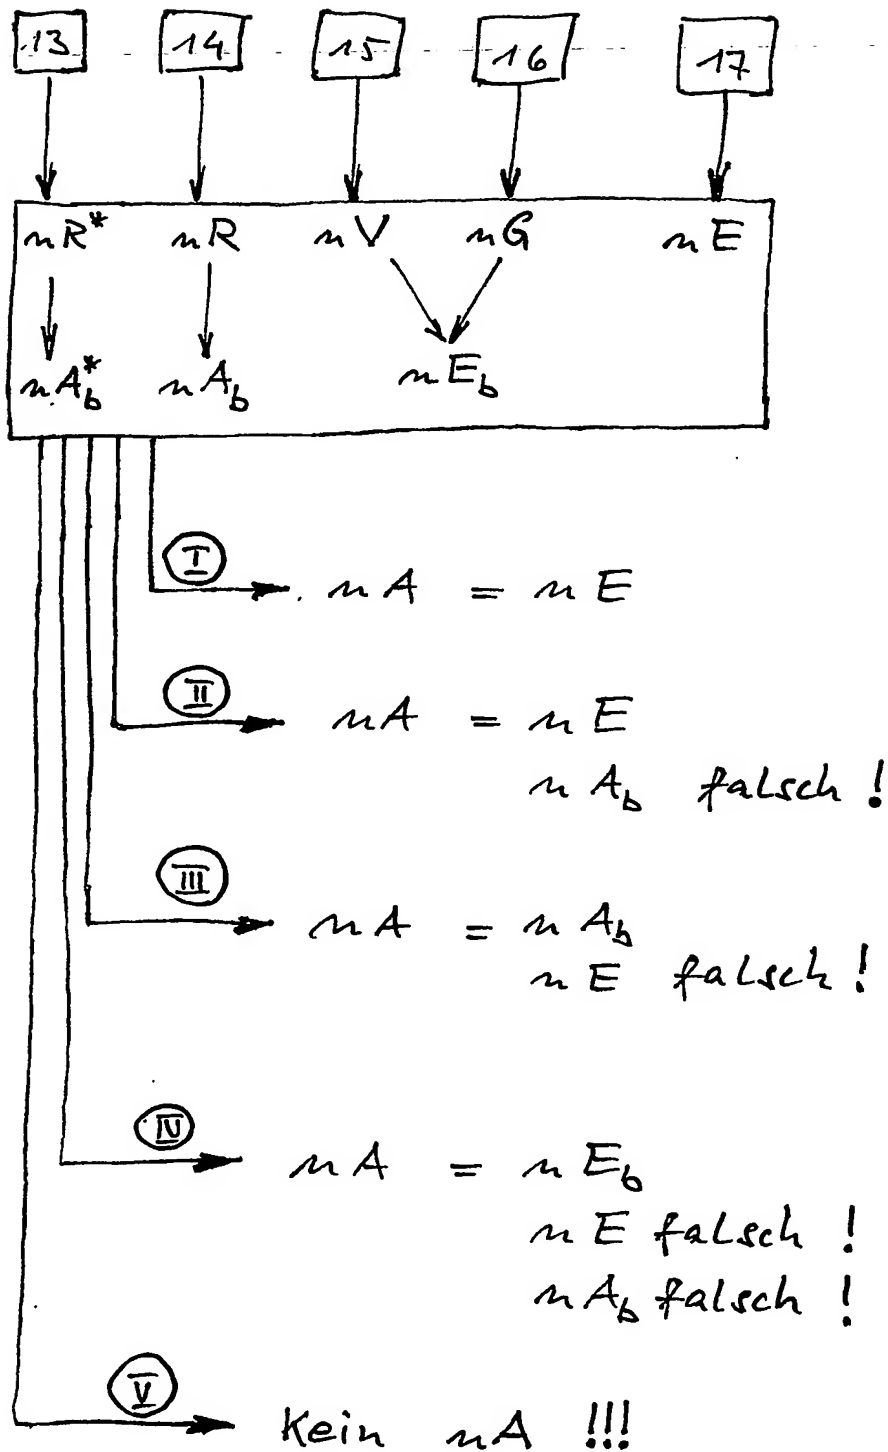 13 14 15 16 17
nR* nR nV nG nE
nA_b* nA_b nE_b
I
nA = nE
II
nA = nE
nA_b falsch !
III
nA = nA_b
nE falsch !
IV
nA = nE_b
nE falsch !
nA_b falsch !
V
Kein nA !!!